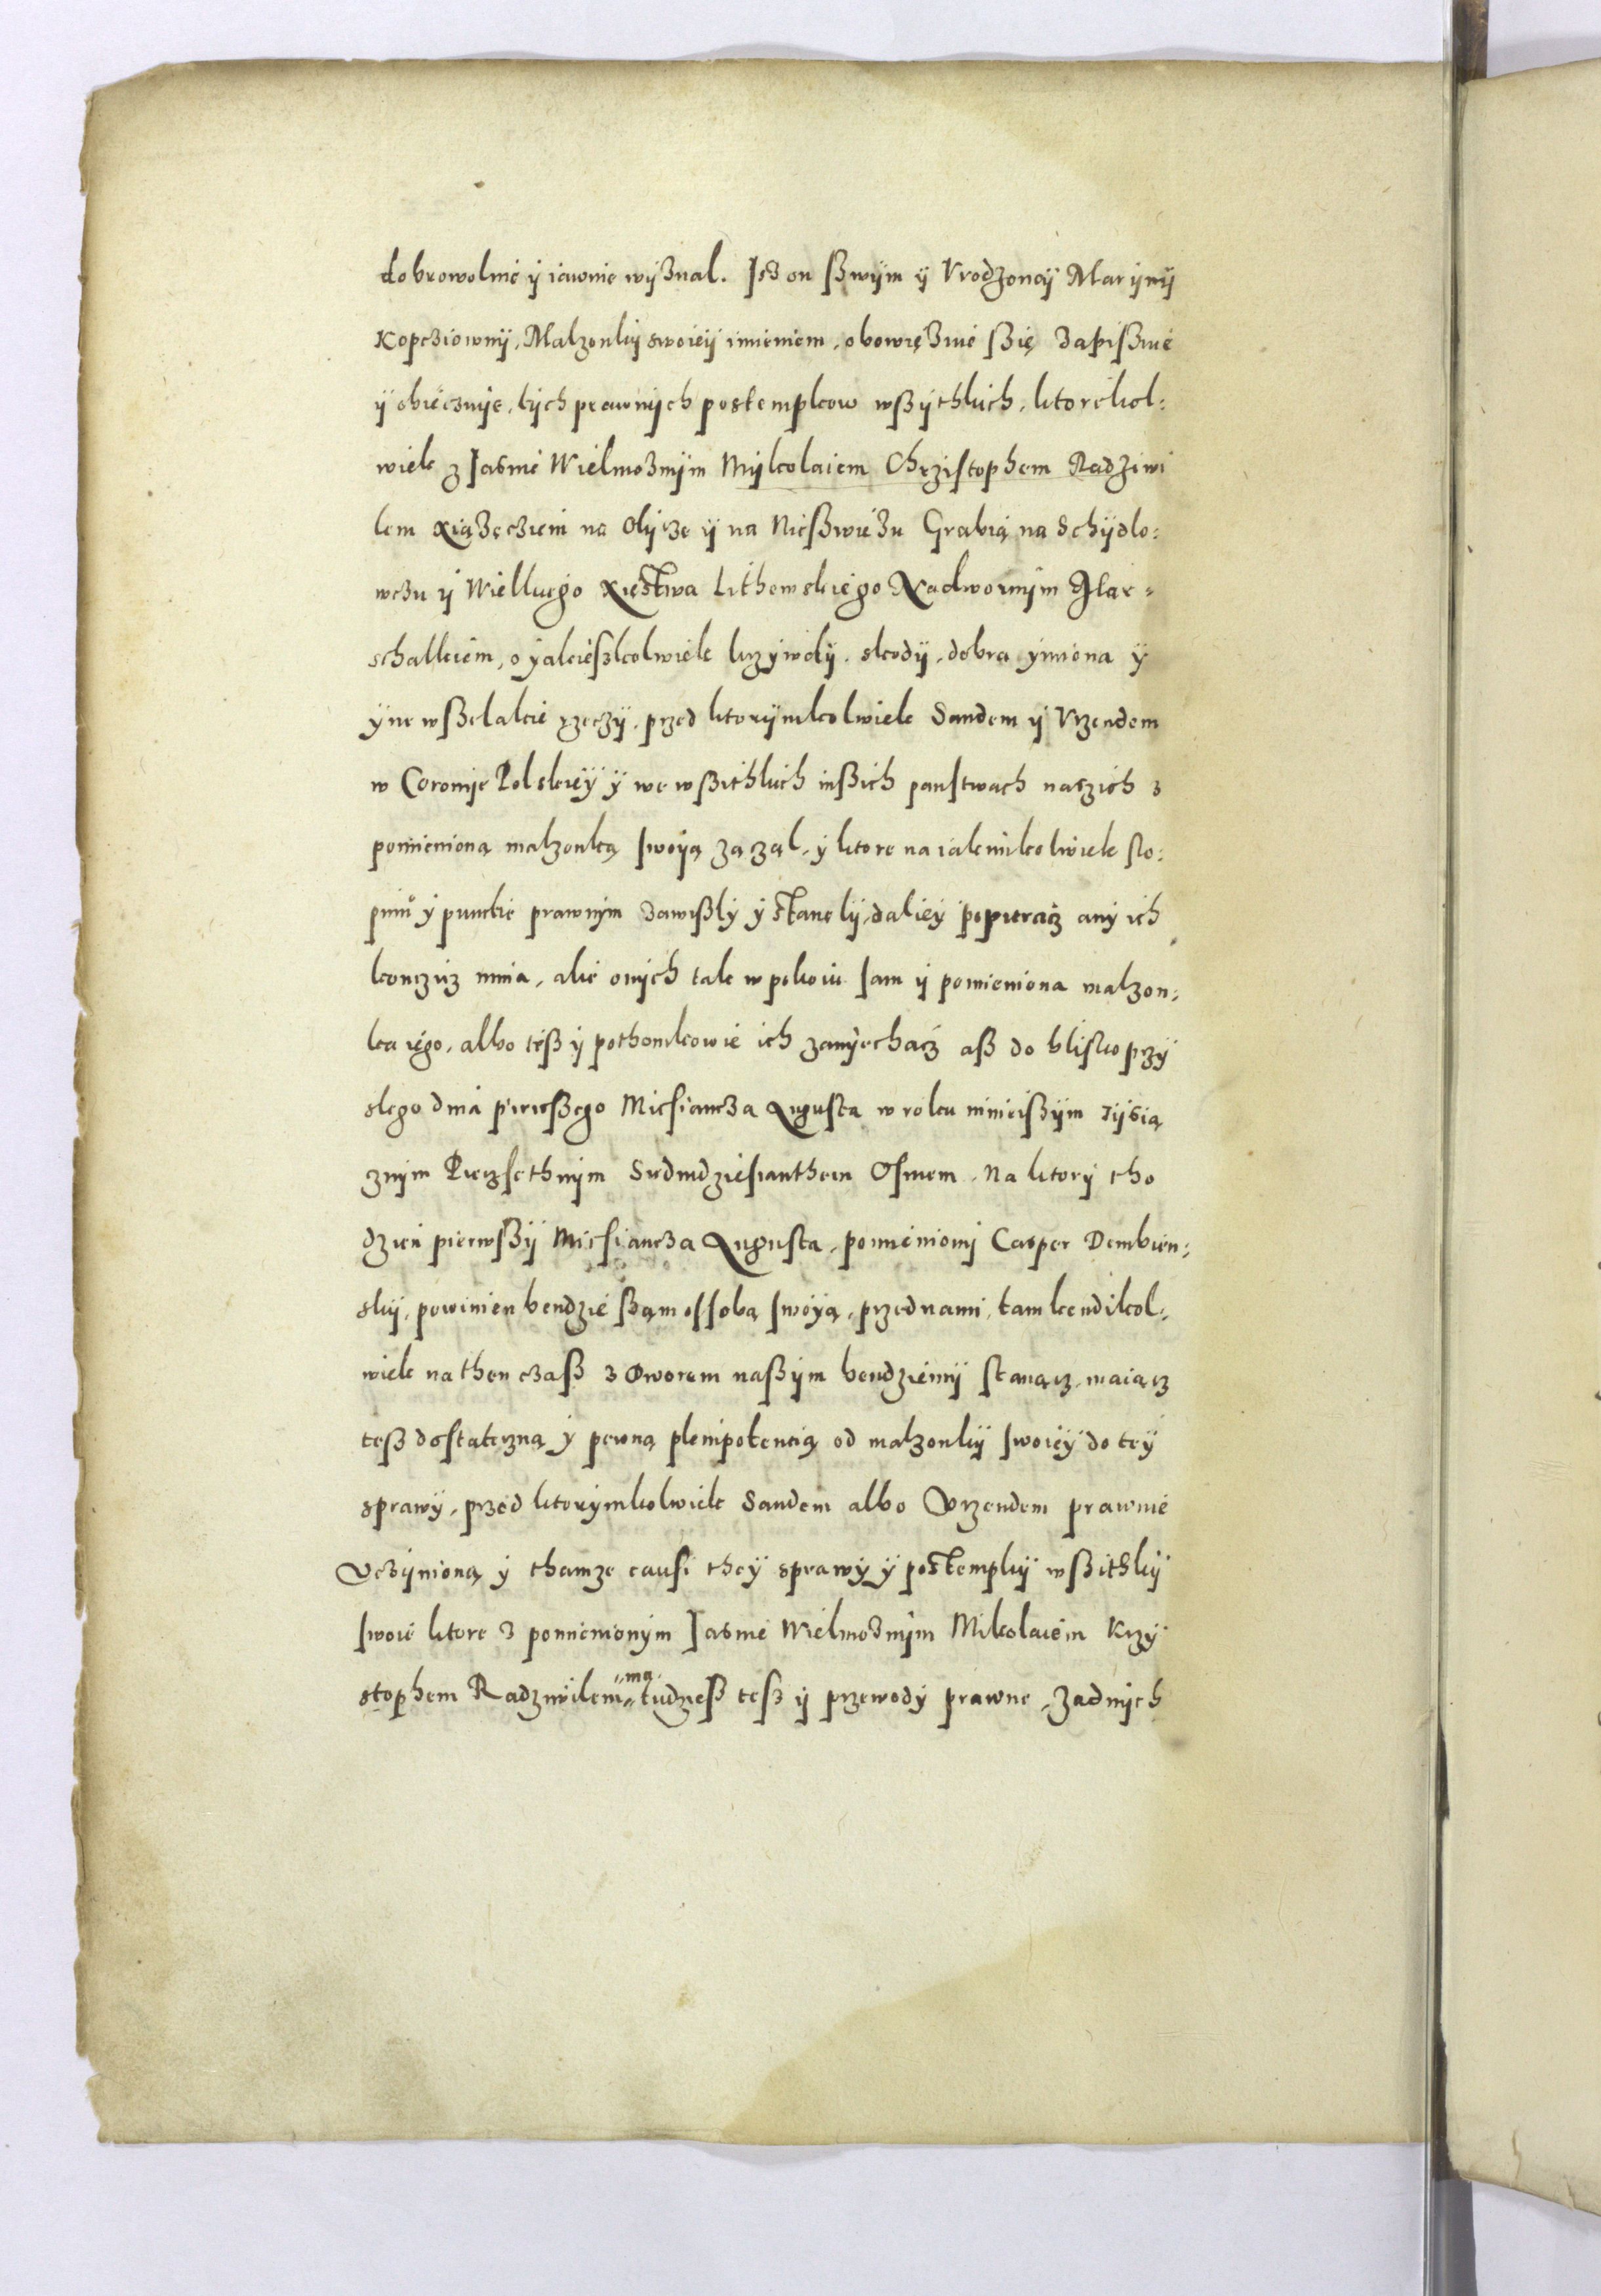 dobrowolnie ÿ iawnie wÿznal. Jsz on sswÿm ÿ Vrodzoneÿ Marÿnÿ
Kopcziownÿ, Malzonkÿ swoieÿ imieniem, obowięzuie ssię zapissuie
ÿ obieczuie, tÿch prawnÿch postempkow wssÿthkich, ktorekol:
wiek z Jasnie Wielmoznÿm Mÿkolaiem Chrzistophem Radziwi
lem Xiązęcziem na Olÿcze ÿ na Niesswiezu Grabią na Schÿdlo:
wczu ÿ Wielkiego Xięstwa Lithewskiego Nadwornÿm Mar:
schalkiem, o ÿakiesskolwiek krzÿwdÿ, skodÿ, dobra ÿmiona ÿ
ÿne wsselakie rzeczÿ, przed ktorÿmkolwiek Sandem ÿ Vrzendem
w Coronie Polskieÿ ÿ we wssithkich inssich panstwach naszich z
pomienioną malzonką swoią zaczął, ÿ ktore na iakimkolwiek sto:
pniu ÿ puncie prawnÿm zawisslÿ ÿ stanelÿ, daliéÿ popieracz anÿ ich
konczicz nima, alie onÿch tak w pokoiu sam ÿ pomieniona malzon:
ka iégo, albo téss ÿ pothomkowie ich zanÿechacz ass do blisko przÿ
slego dnia pierwssego Miesiancza Augusta w roku ninieissÿm Tÿsią
cznÿm Pieczsethnÿm Siedmdziesianthem Osmem. Na ktorÿ tho
dzień pierwssÿ Miesiancza Augusta, pomienionÿ Casper Dembien:
skÿ, powinien bendzie ssąm ossobą swoią, przed nami, tam kendikol:
wiek na then czass z Dworem nassÿm bendziemÿ stanącz, maiącz
tess dostateczną ÿ pewną plenipotencią od malzonkÿ swoieÿ do teÿ
sprawÿ, przed ktorÿmkolwiek Sandem albo Vrzendem prawnie
Vczÿnioną, ÿ thamze causi theÿ sprawÿ ÿ postempkÿ wssithkÿ
swoie ktore z pomienionÿm Jasnie Wielmoznÿm Mikolaiem Krzÿ
stophem Radziwilem ma tudziess tess ÿ przewodÿ prawne, zadnÿch